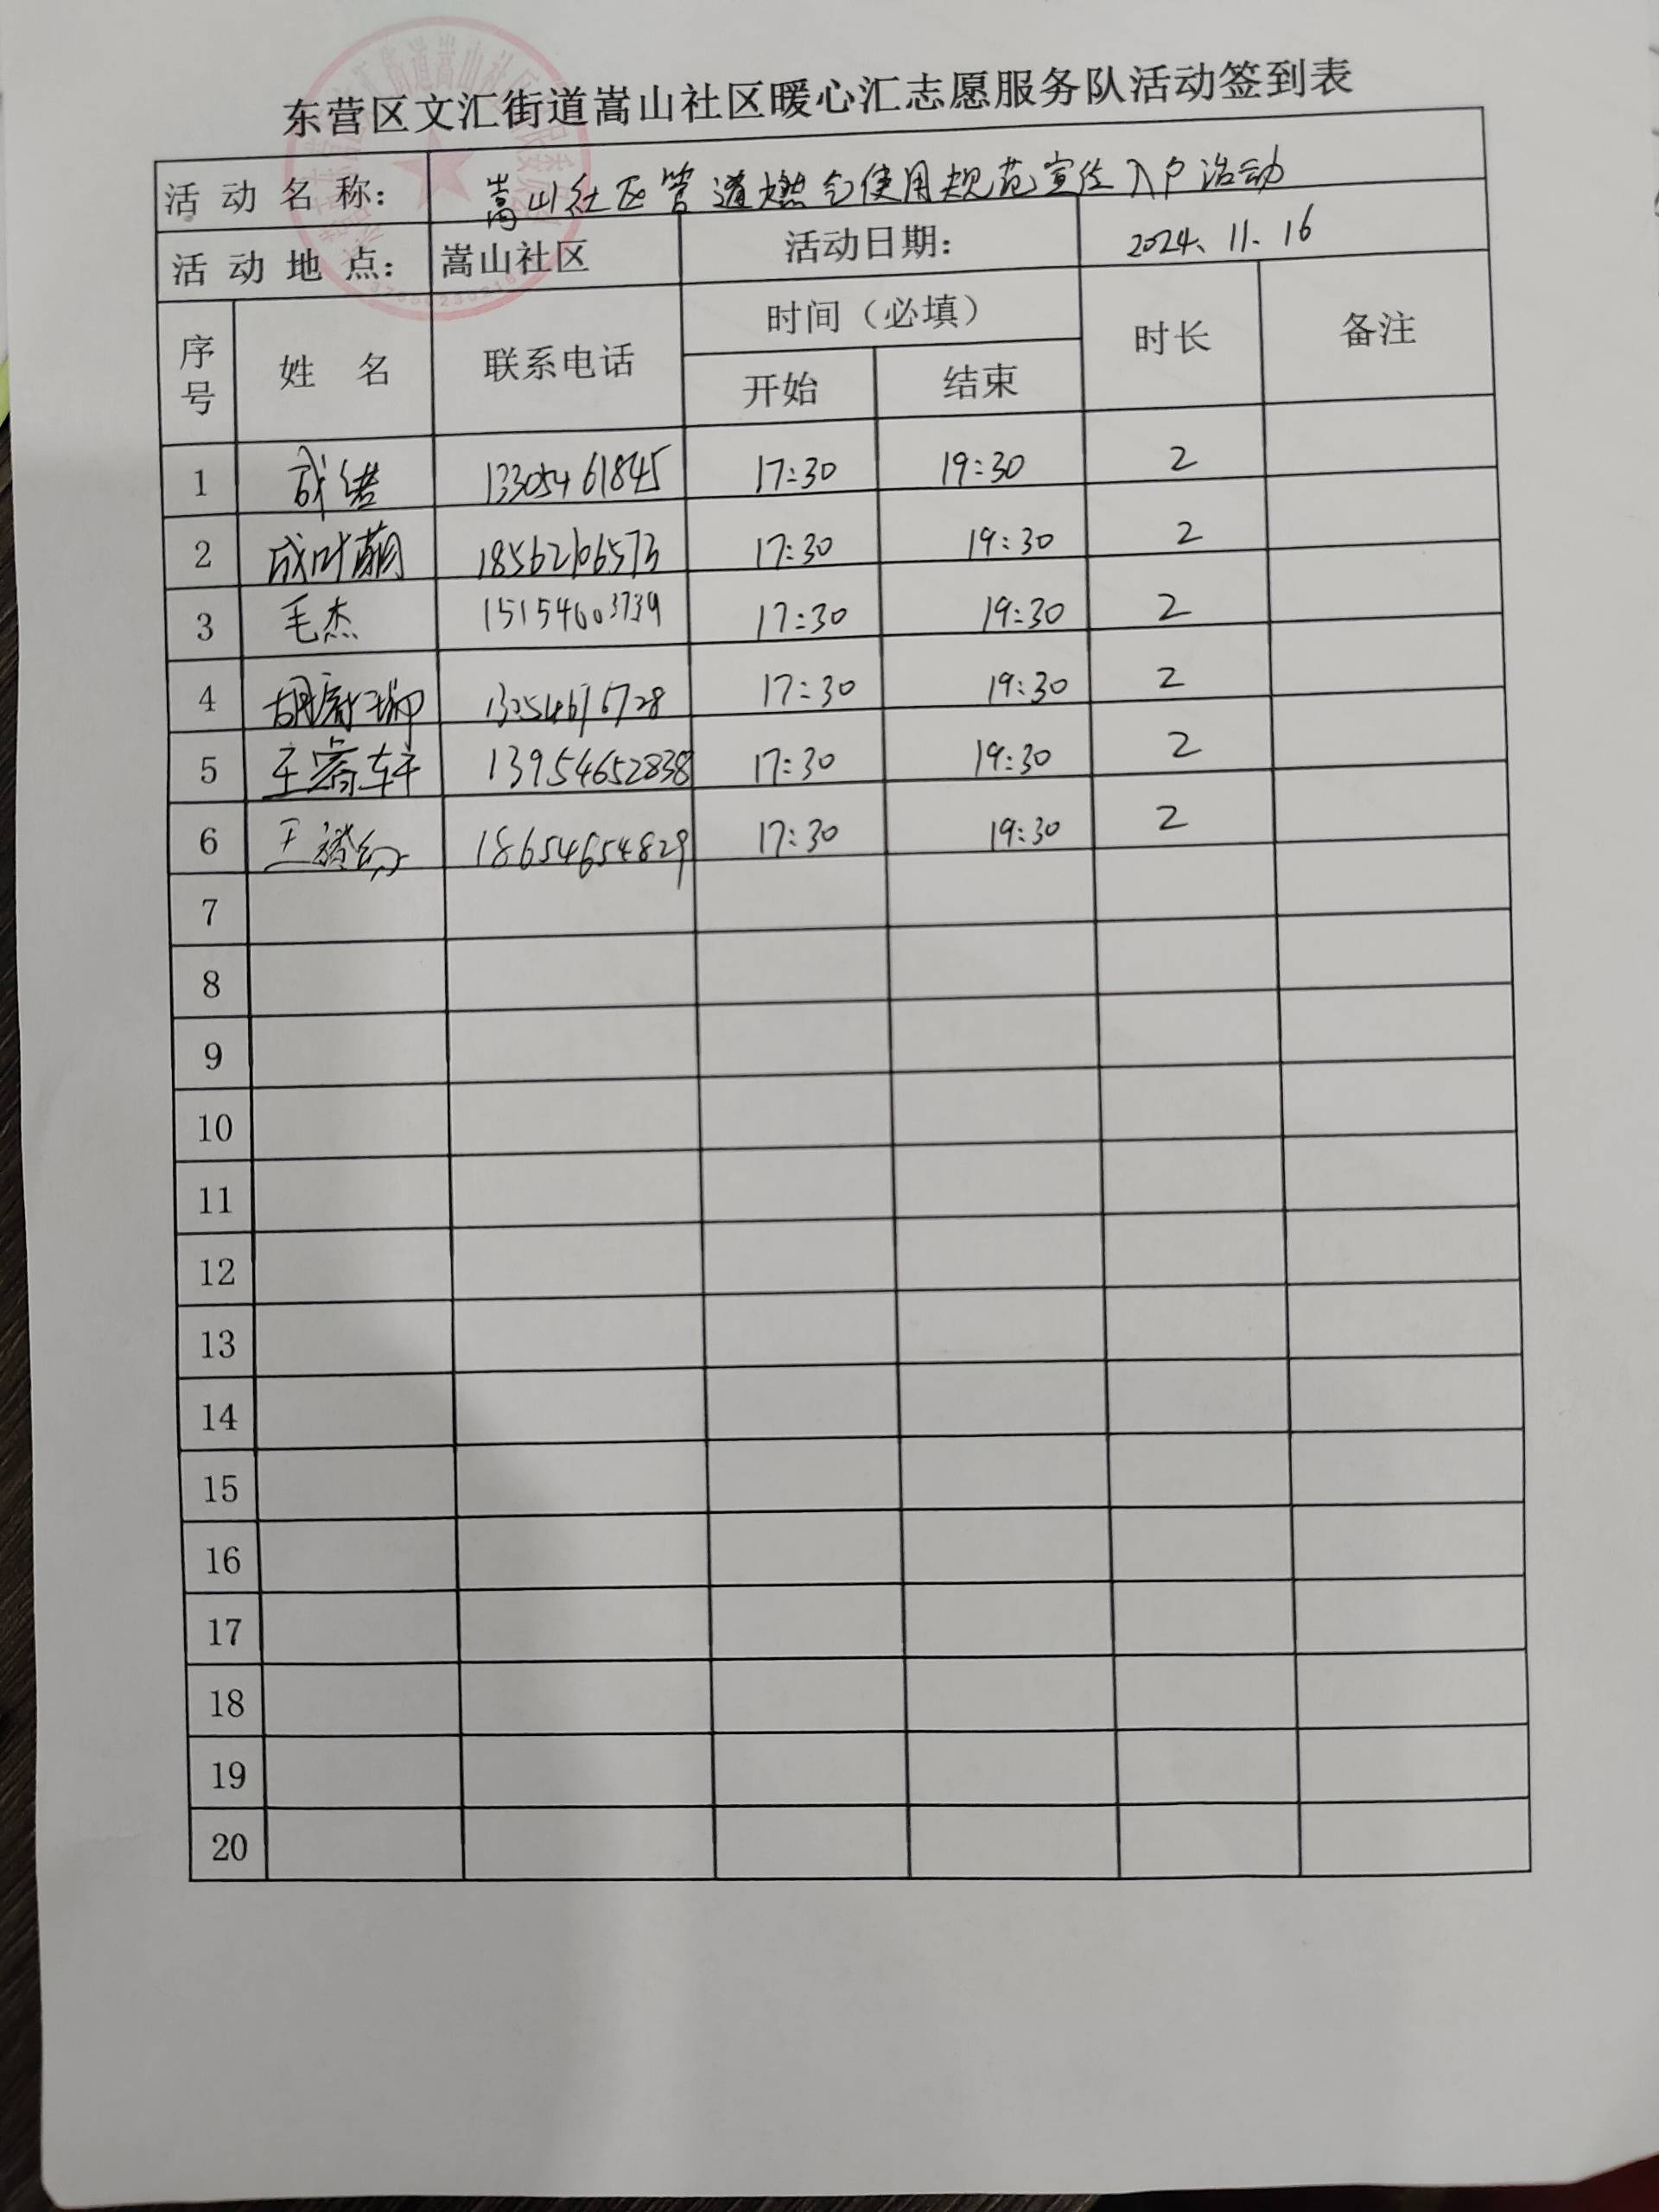 东营区文汇街道嵩山社区暖心汇志愿服务队活动签到表
活动名称： 嵩山社区管道燃气使用规范宣传入户活动
活动地点： 嵩山社区 活动日期： 2024.11.16
序号 姓名 联系电话 时间（必填） 时长 备注
开始 结束
1 成绪 13305461845 17:30 19:30 2
2 18562106573 17:30 19:30 2
3 毛杰 15154603739 17:30 19:30 2
4 17:30 19:30 2
5 王睿轩 13954652838 17:30 19:30 2
6 18654654829 17:30 19:30 2
7
8
9
10
11
12
13
14
15
16
17
18
19
20